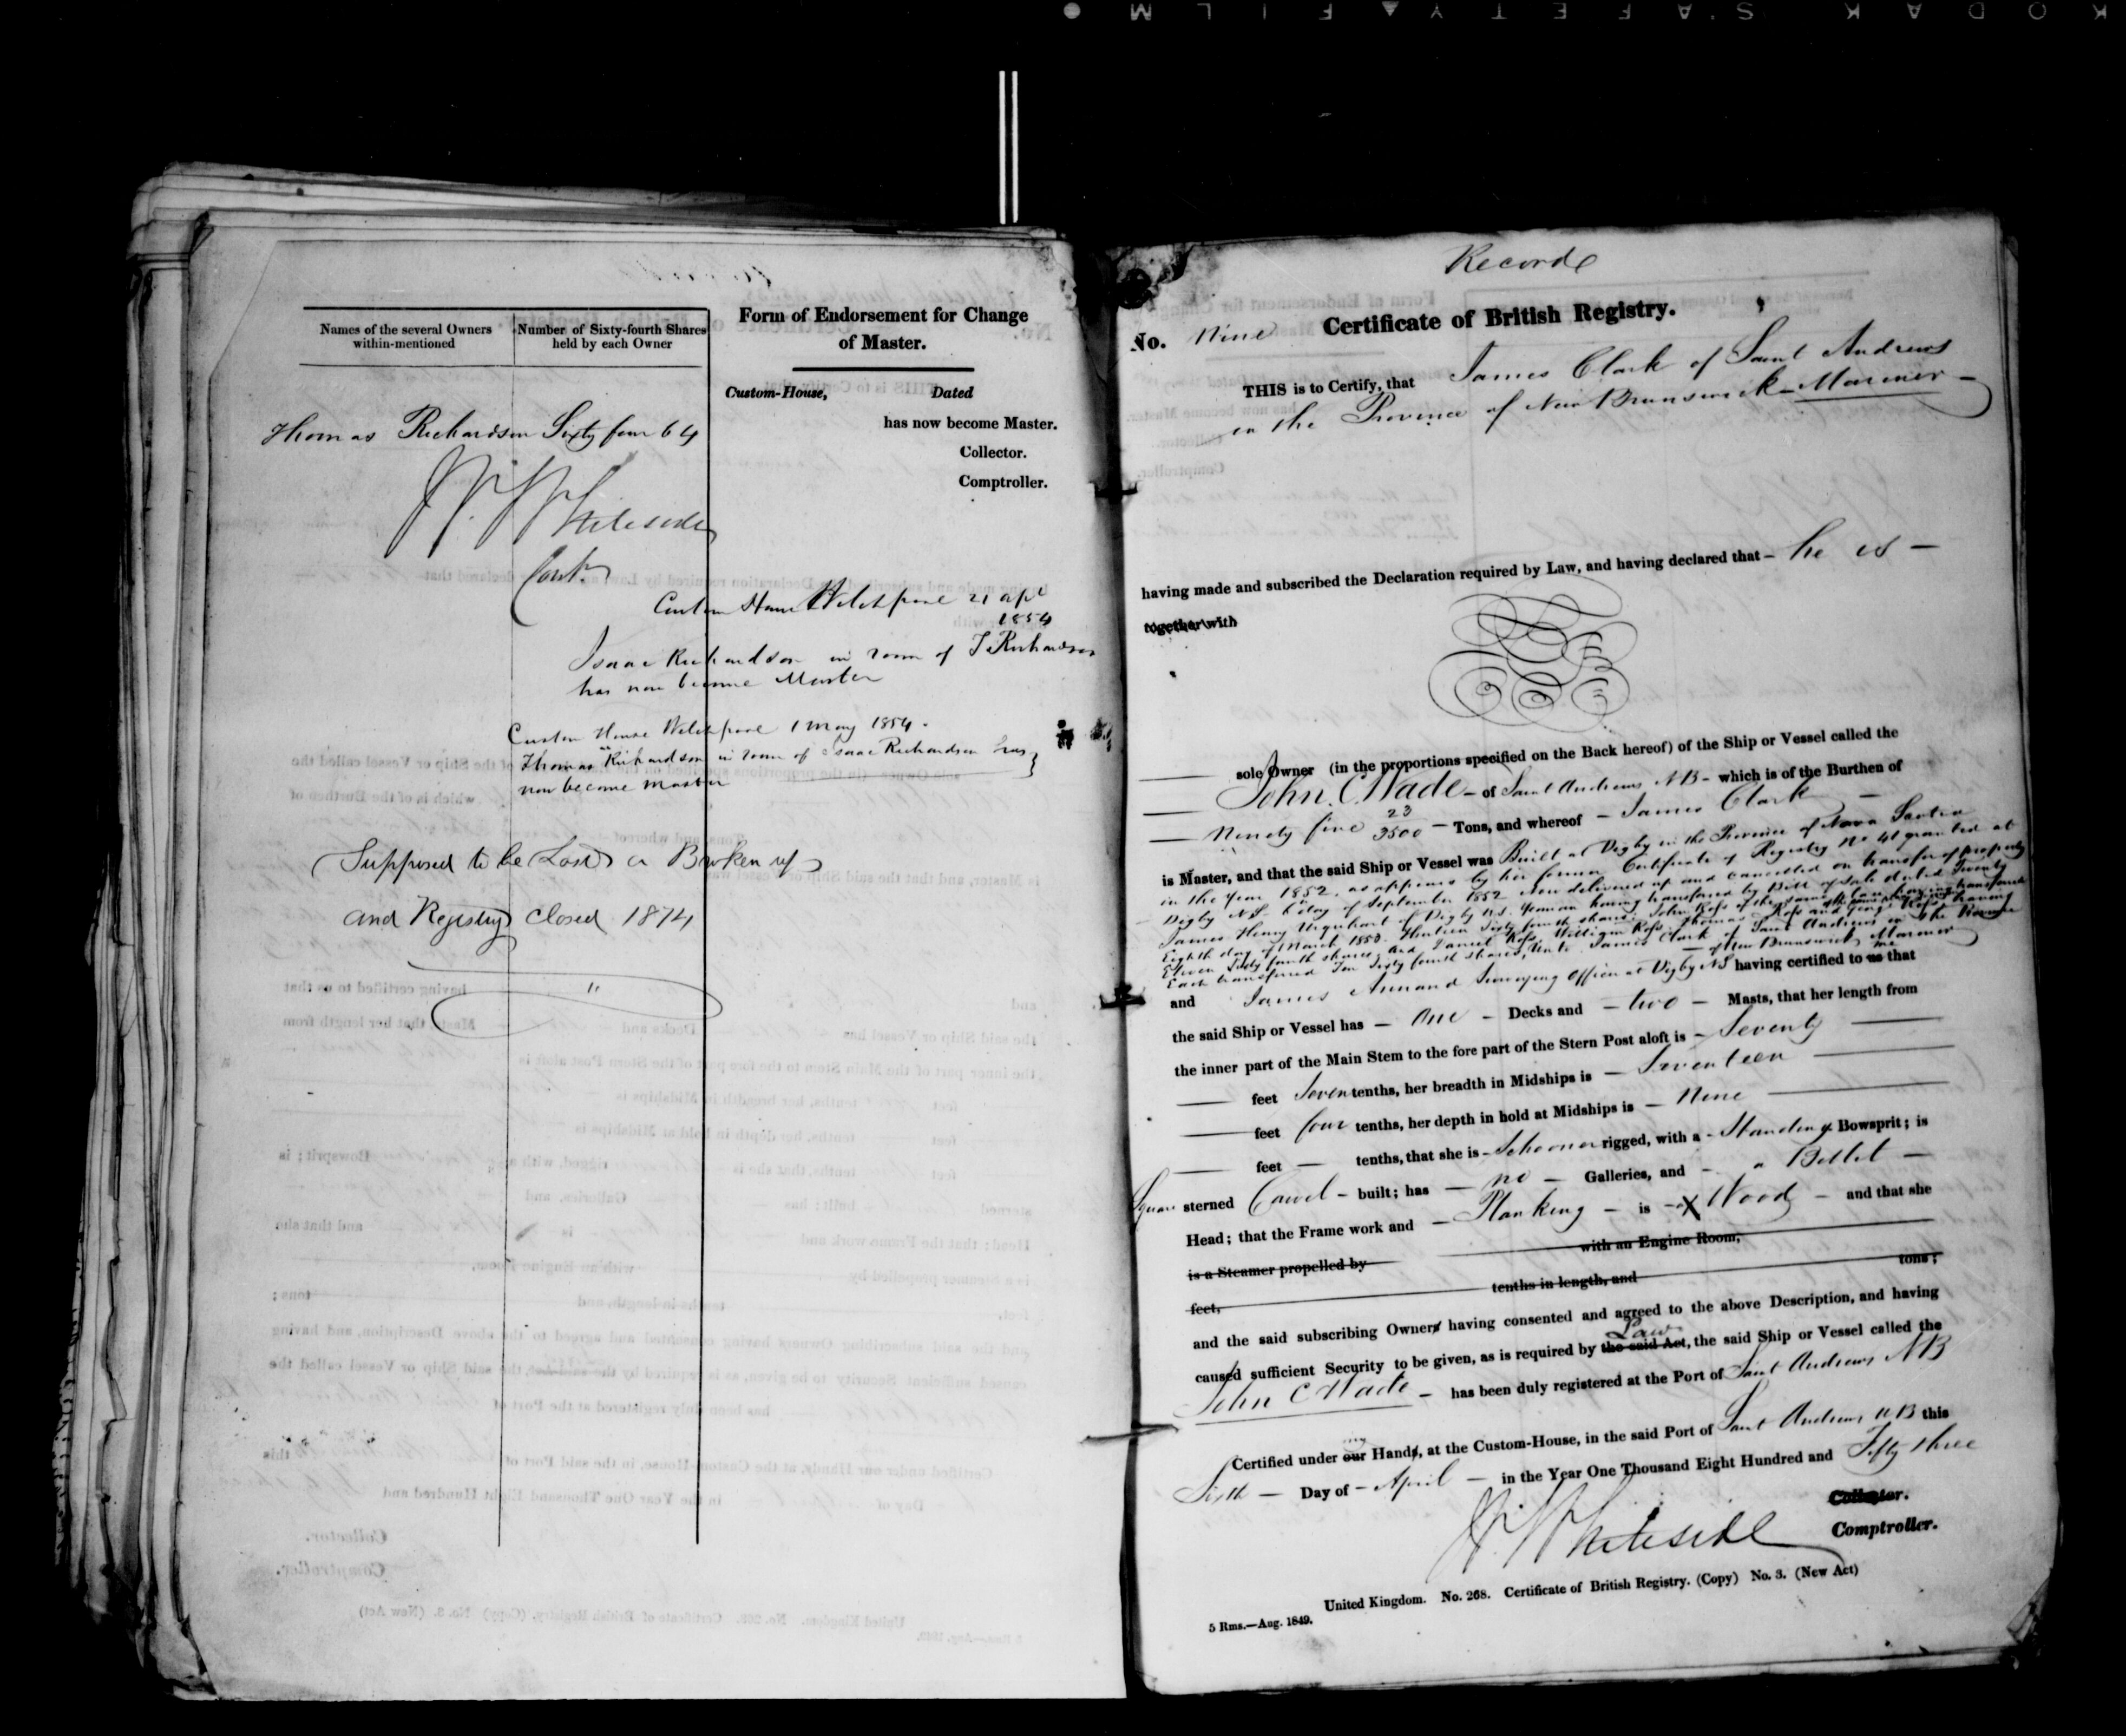 KODAK SAFETY FILM
Names of the several Owners
within-mentioned
Number of Sixty-fourth Shares
held by each Owner
Form of Endorsement for Change
of Master.
Custom-House, Dated
has now become Master.
Collector.
Comptroller.
Thomas Richardson Sixty four 64
Whiteside
Cont.
Custom House Welchpool 21 apl
1854
Isaac Richardson in room of T Richardson
has now become Master
Custom House Welchpool 1 May 1854.
Thomas Richardson in room of Isaac Richardson has
now become master
Supposed to be Lost or Broken up
and Registry closed 1874
Record
No. Nine Certificate of British Registry.
THIS is to Certify, that James Clark of Saint Andrews
in the Province of New Brunswick - Mariner -
having made and subscribed the Declaration required by Law, and having declared that - he is -
together with
sole Owner (in the proportions specified on the Back hereof) of the Ship or Vessel called the
John C Wade - of Saint Andrews NB - which is of the Burthen of
Ninety five 23/3500 - Tons, and whereof - James Clark -
is Master, and that the said Ship or Vessel was Built at Digby in the Province of Nova Scotia
in the Year 1852. as appears by her former Certificate of Registry No 41 granted at
Digby NS. 6 day of September 1852 now delivered up and cancelled on transfer of property
James Henry Urquhart of Digby NS. Yeoman having transferred by Bill of Sale dated Twenty
Eighth day of March 1853. Thirteen Sixty fourth shares; John Ross of the same place having transferred
Eleven Sixty fourth shares, and Daniel Ross, William Ross, Thomas Ross and George Ross having
Each transferred Ten Sixty fourth shares, unto James Clark of Saint Andrews in the Province
of New Brunswick Mariner
and James Annand Surveying Officer at Digby NS having certified to us me that
the said Ship or Vessel has - One - Decks and - two - Masts, that her length from
the inner part of the Main Stem to the fore part of the Stern Post aloft is - Seventy
feet Seven tenths, her breadth in Midships is - Seventeen
feet four tenths, her depth in hold at Midships is - Nine
feet - tenths, that she is - Schooner rigged, with a - Standing Bowsprit; is
Square sterned Carvel - built; has - no - Galleries, and - a Billet -
Head; that the Frame work and - Planking - is - of Wood - and that she
is a Steamer propelled by with an Engine Room,
feet, tenths in length, and tons;
and the said subscribing Owners having consented and agreed to the above Description, and having
Law
caused sufficient Security to be given, as is required by the said Act, the said Ship or Vessel called the
John C Wade - has been duly registered at the Port of Saint Andrews NB
my
Certified under our Hands, at the Custom-House, in the said Port of Saint Andrews NB this
Sixth - Day of - April - in the Year One Thousand Eight Hundred and Fifty three
Collector.
Whiteside
Comptroller.
United Kingdom. No. 268. Certificate of British Registry. (Copy) No. 3. (New Act)
5 Rms.—Aug. 1849.